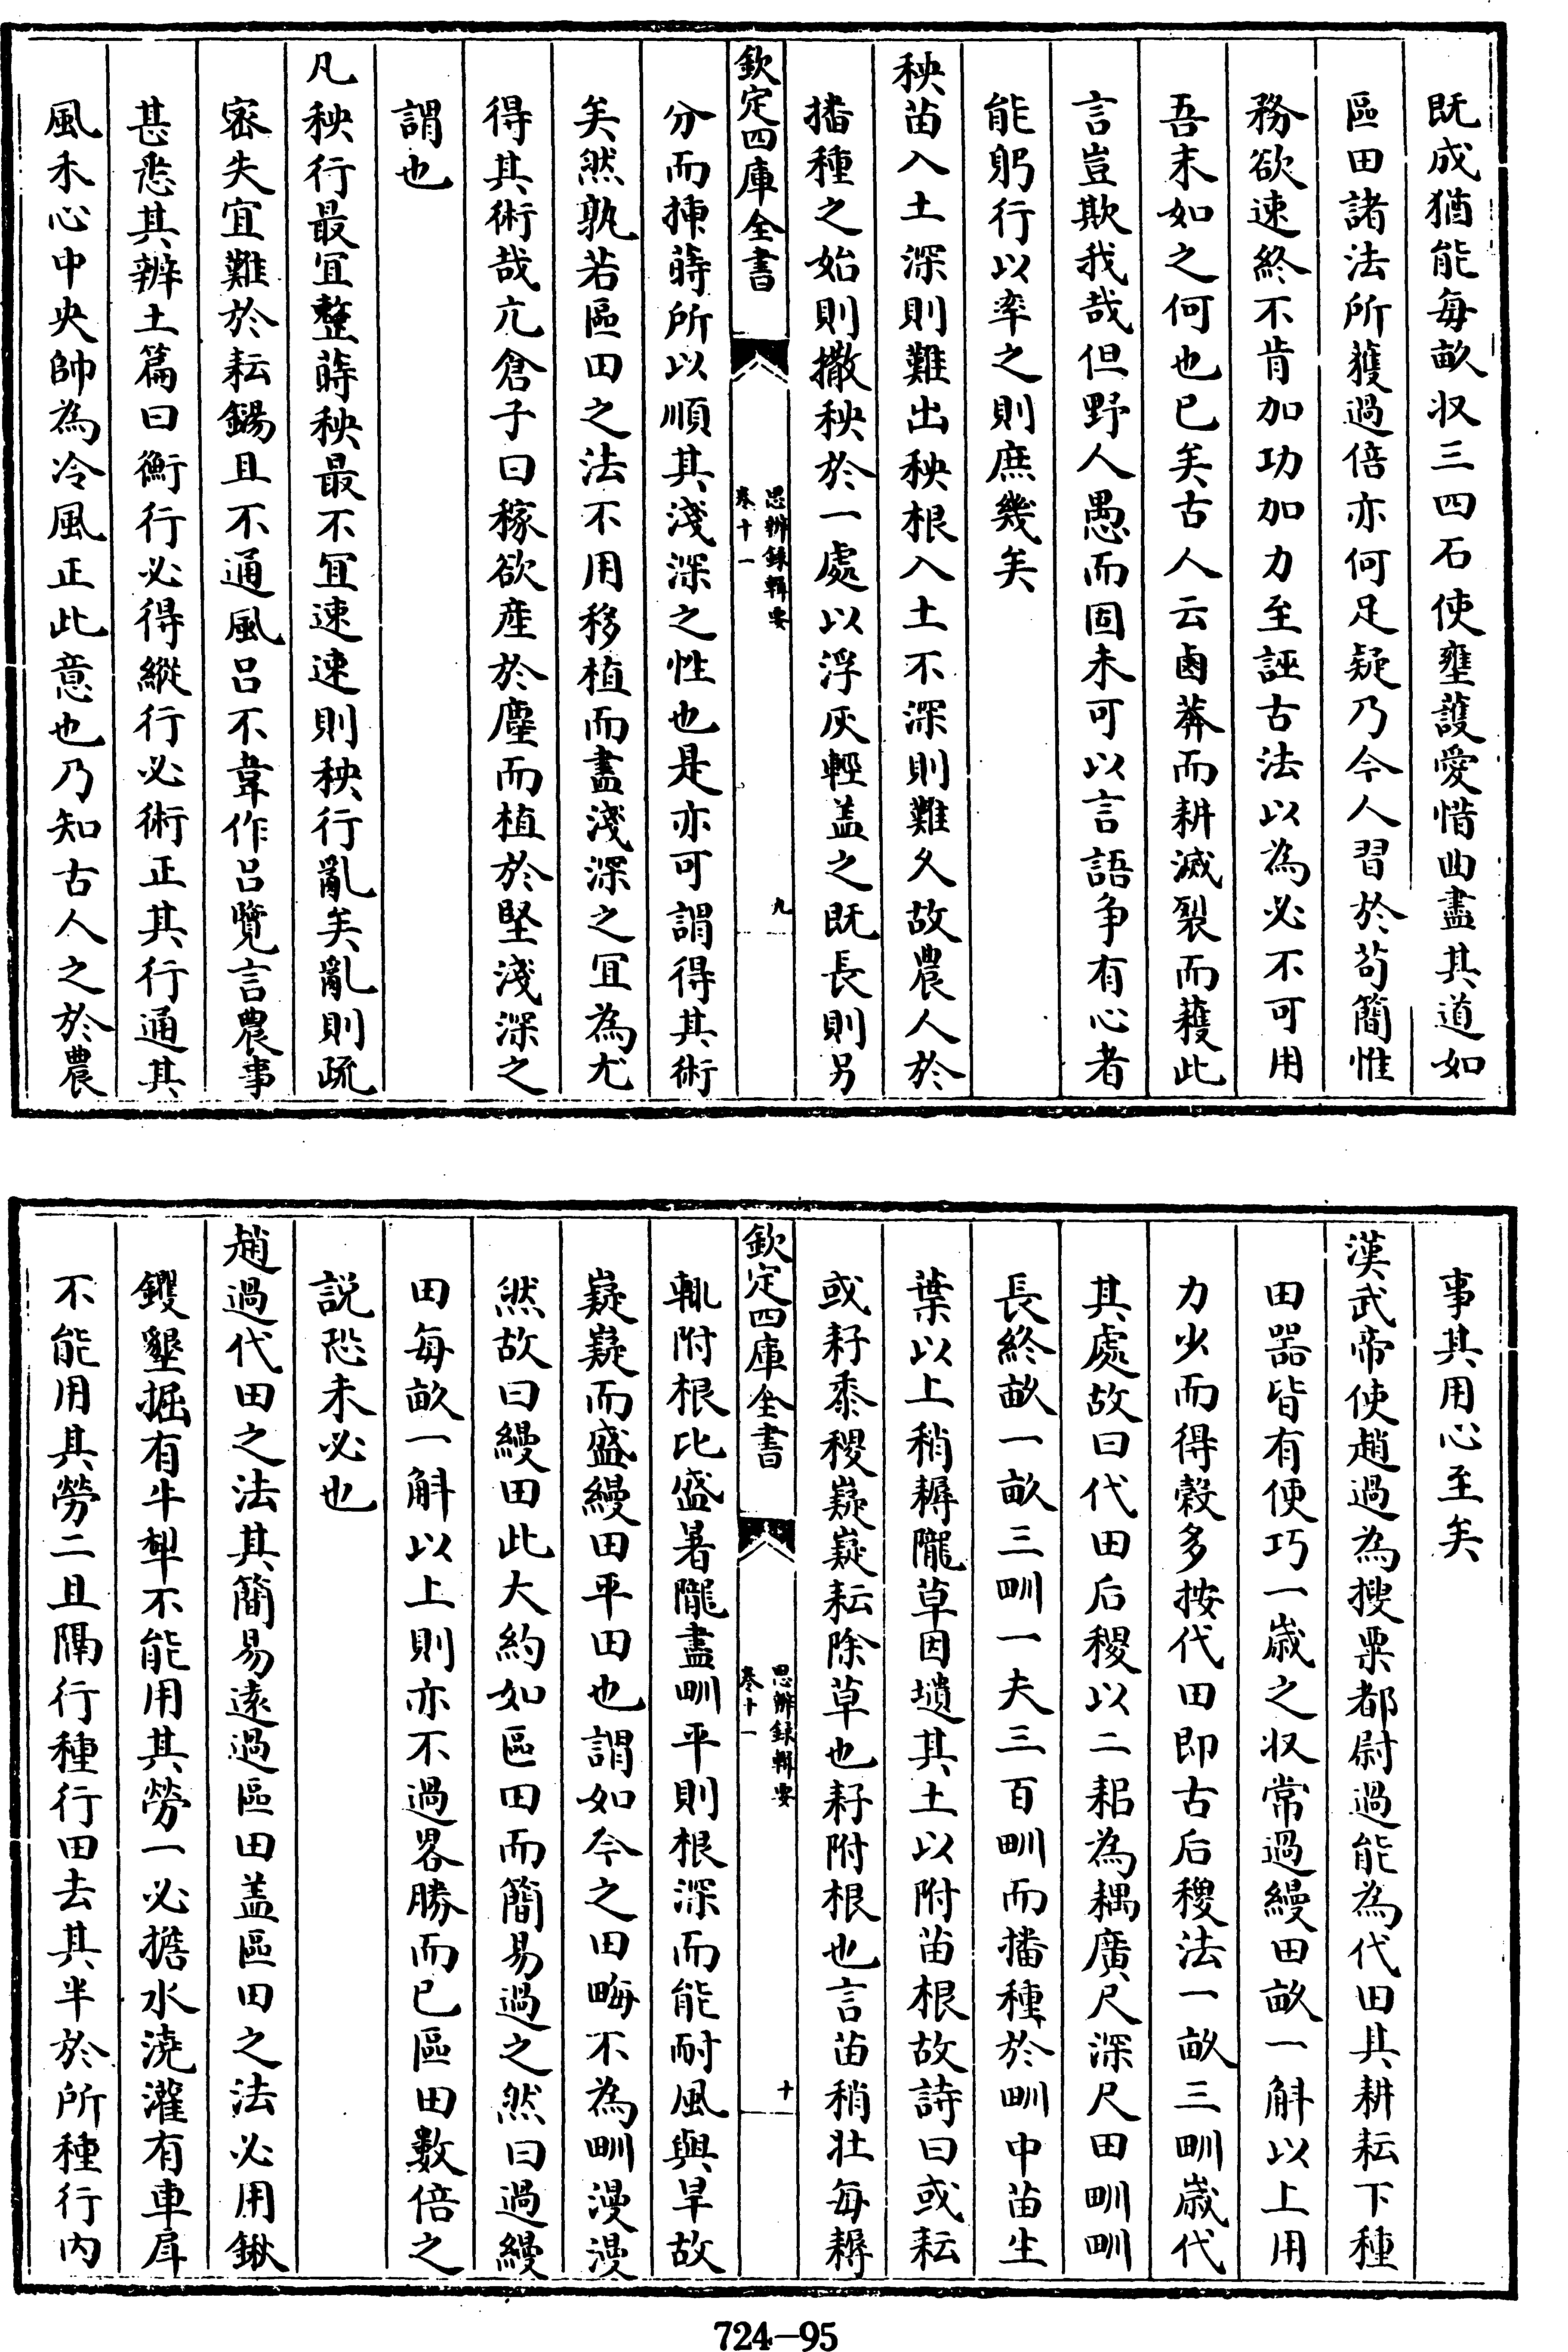 既成猶能每畝収三四石使壅䕶愛惜曲盡其道如
區田諸法所獲過倍亦何足疑乃今人習於茍簡惟
務欲速終不肯加功加力至誣古法以為必不可用
吾末如之何也已矣古人云鹵莽而耕滅裂而穫此
言豈欺我哉但野人愚而固未可以言語争有心者
能躬行以率之則庶幾矣
秧苗入土深則難出秧根入土不深則難久故農人於
播種之始則撒秧於一處以浮灰輕盖之既長則另
欽定四庫全書
思辨録輯要
卷十一
九
分而揀蒔所以順其淺深之性也是亦可謂得其術
矣然孰若區田之法不用移植而盡淺深之宜為尤
得其術哉亢倉子曰稼欲産於塵而植於堅淺深之
謂也
凡秧行最宜整蒔秧最不宜速速則秧行亂矣亂則疏
宻失宜難於耘鍚且不通風吕不韋作吕覽言農事
甚悉其辨土篇曰衡行必得縱行必術正其行通其
風禾心中央帥為冷風正此意也乃知古人之於農
事其用心至矣
漢武帝使趙過為搜粟都尉過能為代田其耕耘下種
田器皆有便巧一歲之収常過縵田畝一斛以上用
力少而得穀多按代田即古后稷法一畝三甽歲代
其處故曰代田后稷以二耜為耦廣尺深尺田甽甽
長終畝一畝三甽一夫三百甽而播種於甽中苗生
葉以上稍耨隴草因壝其土以附苗根故詩曰或耘
或耔黍稷嶷嶷耘除草也耔附根也言苗稍壯每耨
欽定四庫全書
思辨録輯要
卷十一
十
輒附根比盛暑隴盡甽平則根深而能耐風與旱故
嶷嶷而盛縵田平田也謂如今之田畮不為甽漫漫
然故曰縵田此大約如區田而簡易過之然曰過縵
田每畝一斛以上則亦不過畧勝而已區田數倍之
説恐未必也
趙過代田之法其簡易遠過區田盖區田之法必用鍬
钁墾掘有牛犂不能用其勞一必擔水澆灌有車戽
不能用其勞二且隔行種行田去其半於所種行内
724—95